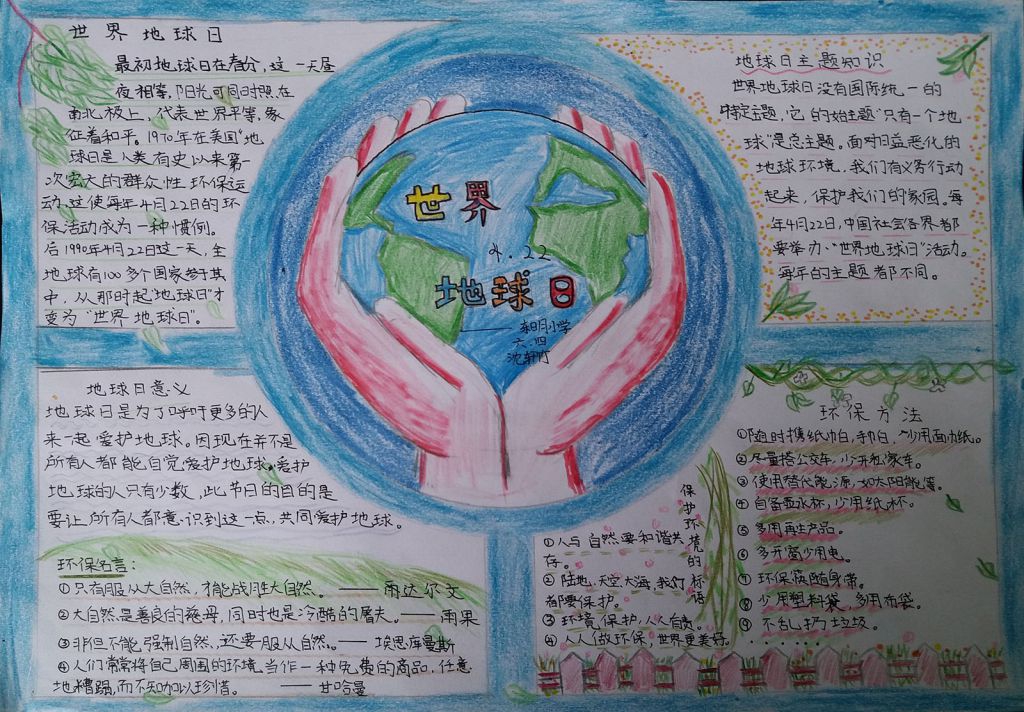 世界地球日
最初地球日在春分,这一天昼
夜相等,阳光可同时照在
南北极上,代表世界平等,象
征着和平。1970年在美国“地
球日是人类有史以来第一
次宏大的群众性环保运
动.这使每年4月22日的环
保活动成为一种惯例。
后1990年4月22日这一天,全
地球有100多个国家参于其
中,从那时起“地球日”才
变为“世界地球日”。
世界
4.22
地球日
——东明小学
六.四
沈轩竹
地球日主题知识
世界地球日没有国际统一的
特定主题,它的始主题“只有一个地
球”是总主题。面对日益恶化的
地球环境,我们有义务行动
起来,保护我们的家园。每
年4月22日,中国社会各界都
要举办“世界地球日”活动。
每年的主题都不同。
地球日意义
地球日是为了呼吁更多的人
来一起爱护地球。因现在并不是
所有人都能自觉爱护地球。爱护
地球的人只有少数,此节日的目的是
要让所有人都意识到这一点,共同爱护地球。
环保名言:
①只有服从大自然,才能战胜大自然。——雨达尔文
②大自然是善良的慈母,同时也是冷酷的屠夫。——雨果
③非但不能强制自然,还要服从自然。——埃思库曼斯
④人们常常将自己周围的环境当作一种免费的商品,任意
地糟蹋,而不知加以珍惜。——甘哈曼
保护环境的标语
①人与自然要和谐共
存。
②陆地,天空,大海,我们
都要保护。
③环境保护,人人有责。
④人人做环保,世界更美好。
环保方法
①随时携纸巾白,手巾白,少用面巾纸。
②尽量搭公交车,少开私家车。
③使用替代能源,如太阳能等。
④自备壶水杯,少用纸水杯。
⑤多用再生产品。
⑥多开窗少用电。
⑦环保筷随身带。
⑧少用塑料袋,多用布袋。
⑨不乱扔垃圾。